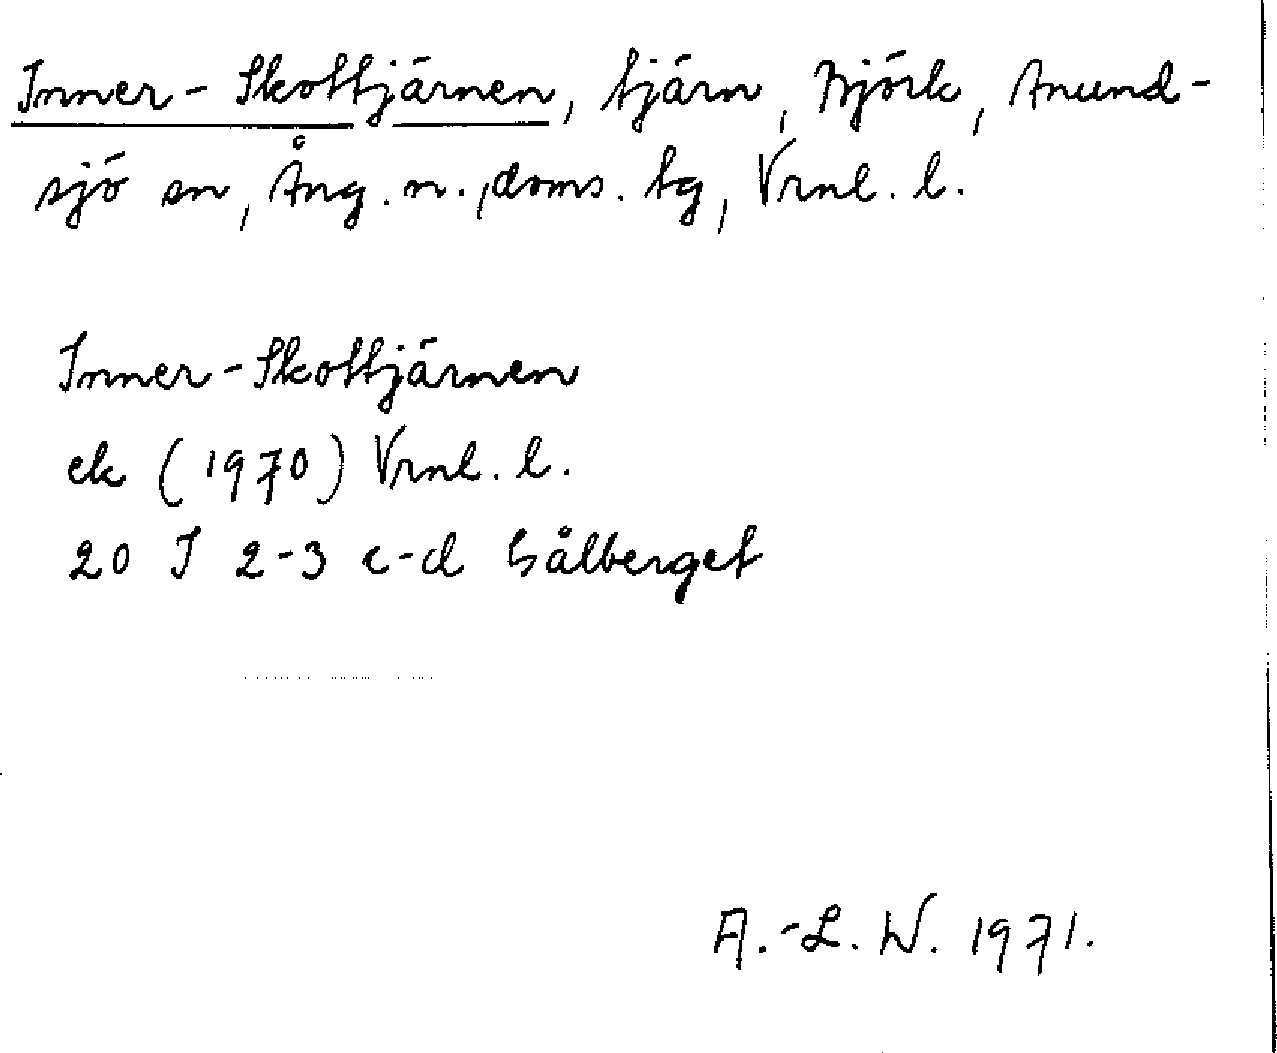 Inner-Skottjärnen, tjärn, Björk, Anund-
sjö sn, Ång. n., doms. tg, Vrnl. l.
Inner-Skottjärnen
ek (1970) Vrnl. l.
20 I 2-3 c-d Sålberget
A.-L. W. 1971.